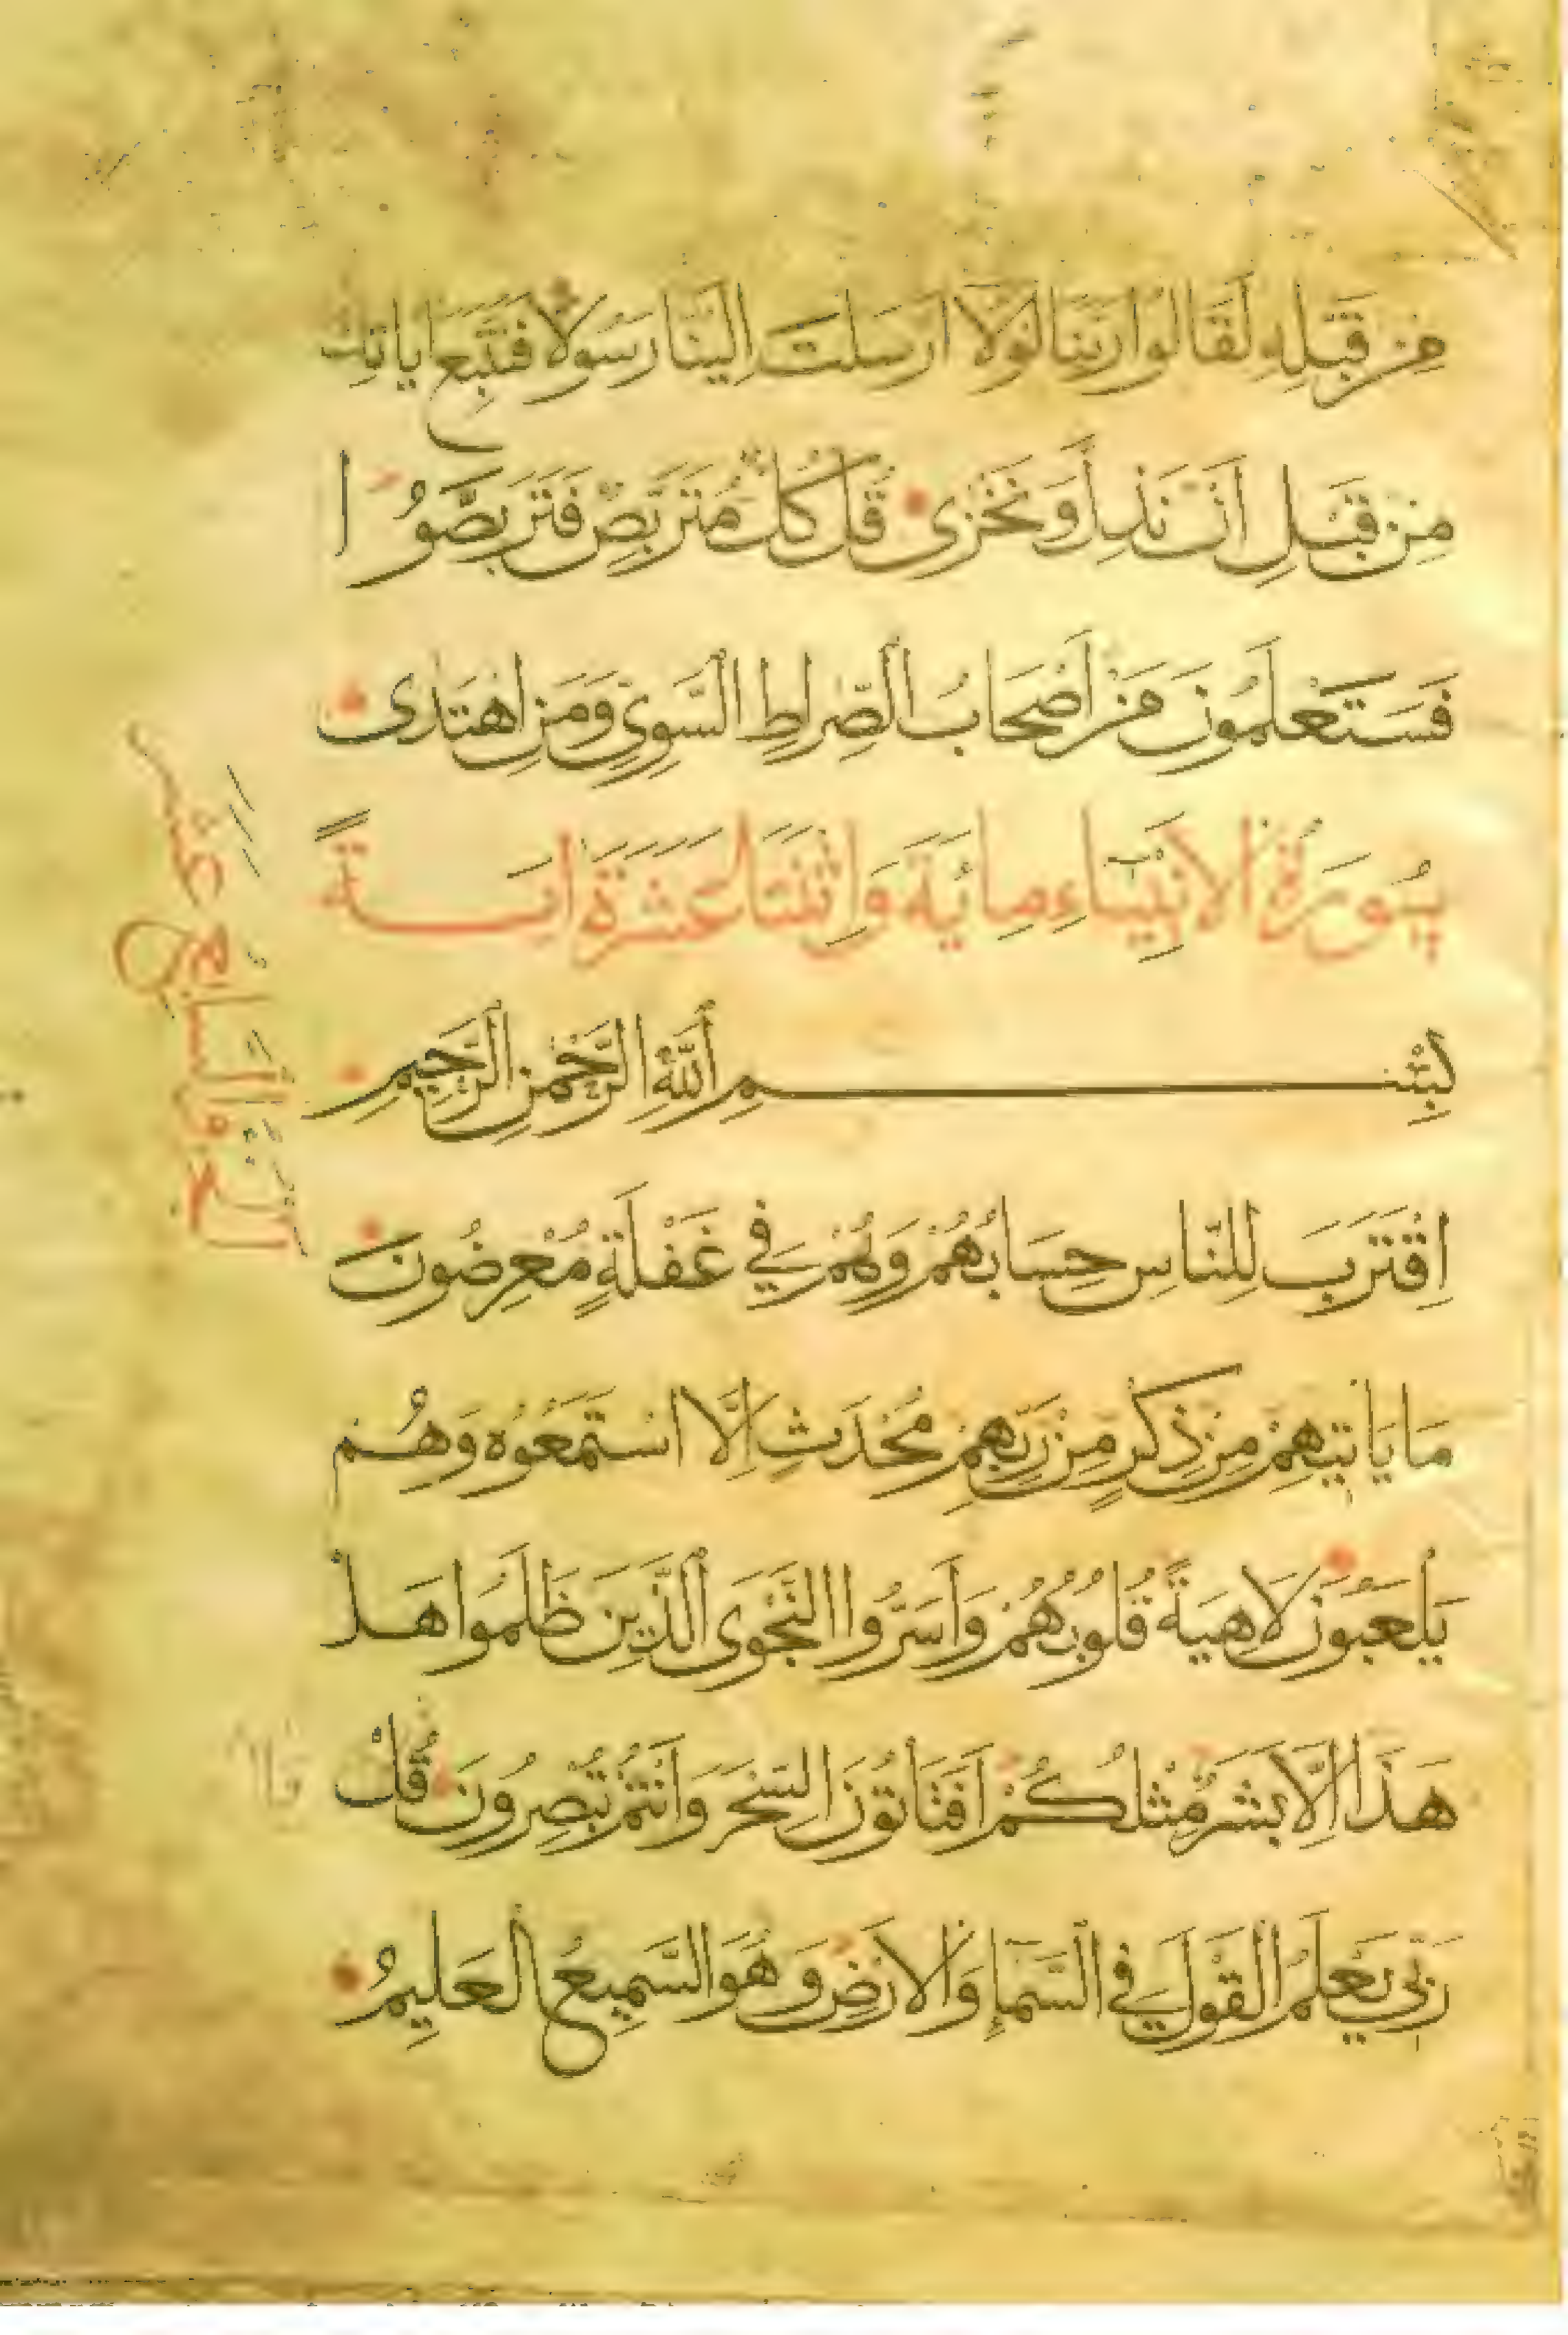 مِنْ قَبْلِهِ لَقَالُوا رَبَّنَا لَوْلَا أَرْسَلْتَ إِلَيْنَا رَسُولًا فَنَتَّبِعَ اٰيَاتِكَ
مِنْ قَبْلِ أَنْ نَذِلَّ وَنَخْزَى قُلْ كُلٌّ مُتَرَبِّصٌ فَتَرَبَّصُوا
فَسَتَعْلَمُونَ مَنْ أَصْحَابُ الصِّرَاطِ السَّوِيِّ وَمَنِ اهْتَدَى
سُورَةُ الْأَنْبِيَاءِ مِائَةٌ وَاثْنَتَا عَشْرَةَ اٰيَةً
بِسْمِ اللَّهِ الرَّحْمَنِ الرَّحِيمِ
اِقْتَرَبَ لِلنَّاسِ حِسَابُهُمْ وَهُمْ فِي غَفْلَةٍ مُعْرِضُونَ
مَا يَأْتِيهِمْ مِنْ ذِكْرٍ مِنْ رَبِّهِمْ مُحْدَثٍ إِلَّا اسْتَمَعُوهُ وَهُمْ
يَلْعَبُونَ لَاهِيَةً قُلُوبُهُمْ وَأَسَرُّوا النَّجْوَى الَّذِينَ ظَلَمُوا هَلْ
هَذَا إِلَّا بَشَرٌ مِثْلُكُمْ أَفَتَأْتُونَ السِّحْرَ وَأَنْتُمْ تُبْصِرُونَ قُلْ
رَبِّي يَعْلَمُ الْقَوْلَ فِي السَّمَاءِ وَالْأَرْضِ وَهُوَ السَّمِيعُ الْعَلِيمُ
الجزء السابع عشر
قال